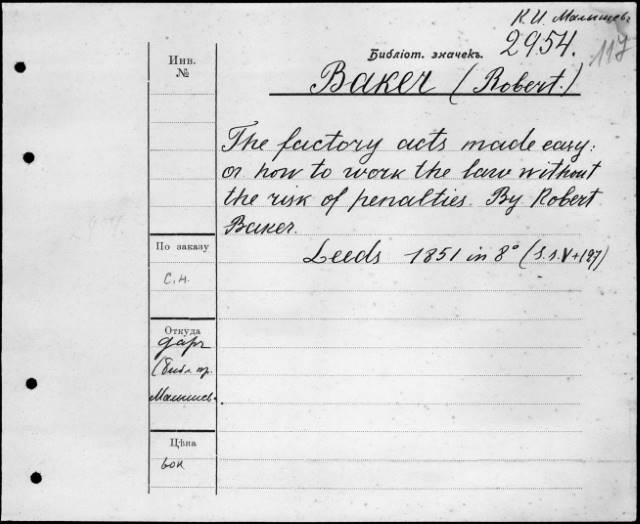 К. И. Малышевъ
2954.
117
Инв.
№
Библіот. значекъ.
Baker (Robert.)
The factory acts made easy:
or how to work the law without
the risk of penalties. By Robert
Baker.
Leeds 1851 in 8° (S.s. V+197)
По заказу
с.н.
Откуда
даръ
(Библ. пр.
Малышев.
Цѣна